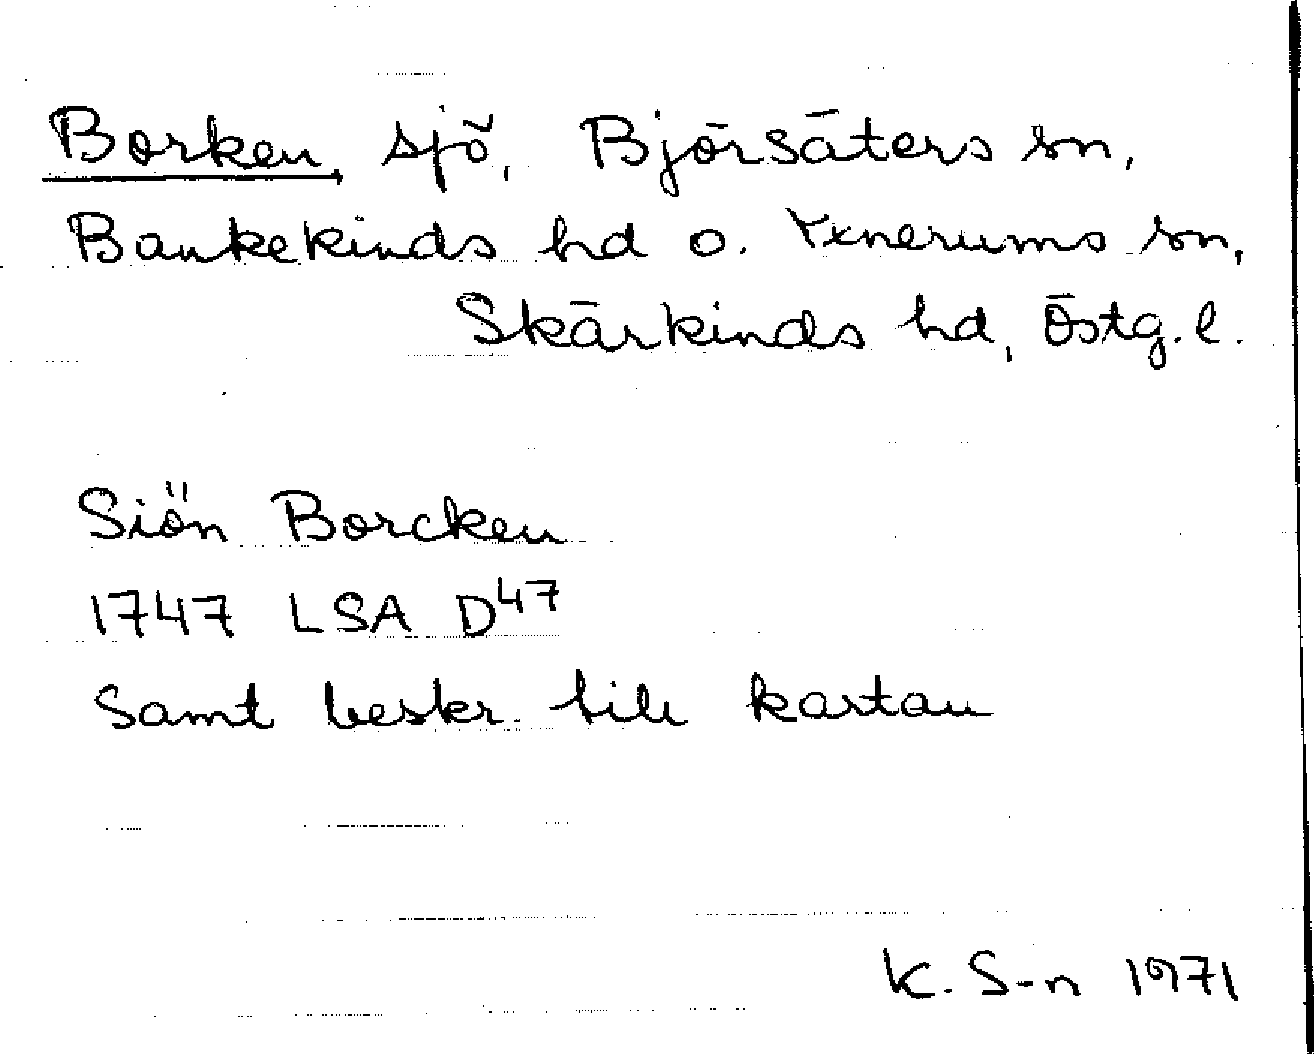 Borken, sjö, Björsäters sn,
Bankekinds hd o. Yxnerums sn,
Skärkinds hd, Östg. l.
Siön Borcken
1747 LSA D47
Samt beskr. till kartan
K. S-n 1971